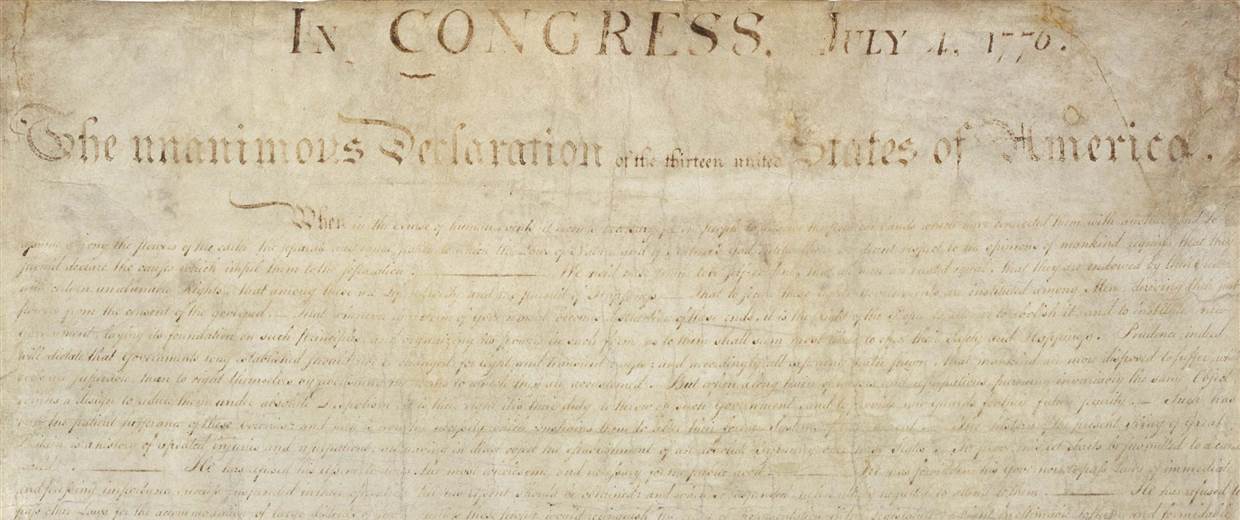 In CONGRESS, July 4, 1776.
The unanimous Declaration of the thirteen united States of America.
When in the Course of human events it becomes necessary for one people to dissolve the political bands which have connected them with another, and to
among the powers of the earth, the separate and equal station to which the Laws of Nature and of Nature's God entitle them, a decent respect to the opinions of mankind requires that they
should declare the causes which impel them to the separation. We hold these truths to be self-evident, that all men are created equal, that they are endowed by their Creator
with certain unalienable Rights, that among these are Life, Liberty and the pursuit of Happiness. — That to secure these rights, Governments are instituted among Men, deriving their just
powers from the consent of the governed, — That whenever any Form of Government becomes destructive of these ends, it is the Right of the People to alter or to abolish it, and to institute new
Government, laying its foundation on such principles and organizing its powers in such form, as to them shall seem most likely to effect their Safety and Happiness. Prudence, indeed,
will dictate that Governments long established should not be changed for light and transient causes; and accordingly all experience hath shewn, that mankind are more disposed to suffer, while
evils are sufferable, than to right themselves by abolishing the forms to which they are accustomed. But when a long train of abuses and usurpations, pursuing invariably the same Object
evinces a design to reduce them under absolute Despotism, it is their right, it is their duty, to throw off such Government, and to provide new Guards for their future security. — Such has
been the patient sufferance of these Colonies; and such is now the necessity which constrains them to alter their former Systems of Government. The history of the present King of Great
Britain is a history of repeated injuries and usurpations, all having in direct object the establishment of an absolute Tyranny over these States. To prove this, let Facts be submitted to a candid
world. He has refused his Assent to Laws, the most wholesome and necessary for the public good. He has forbidden his Governors to pass Laws of immediate
and pressing importance, unless suspended in their operation till his Assent should be obtained; and when so suspended, he has utterly neglected to attend to them. He has refused to
pass other Laws for the accommodation of large districts of people, unless those people would relinquish the